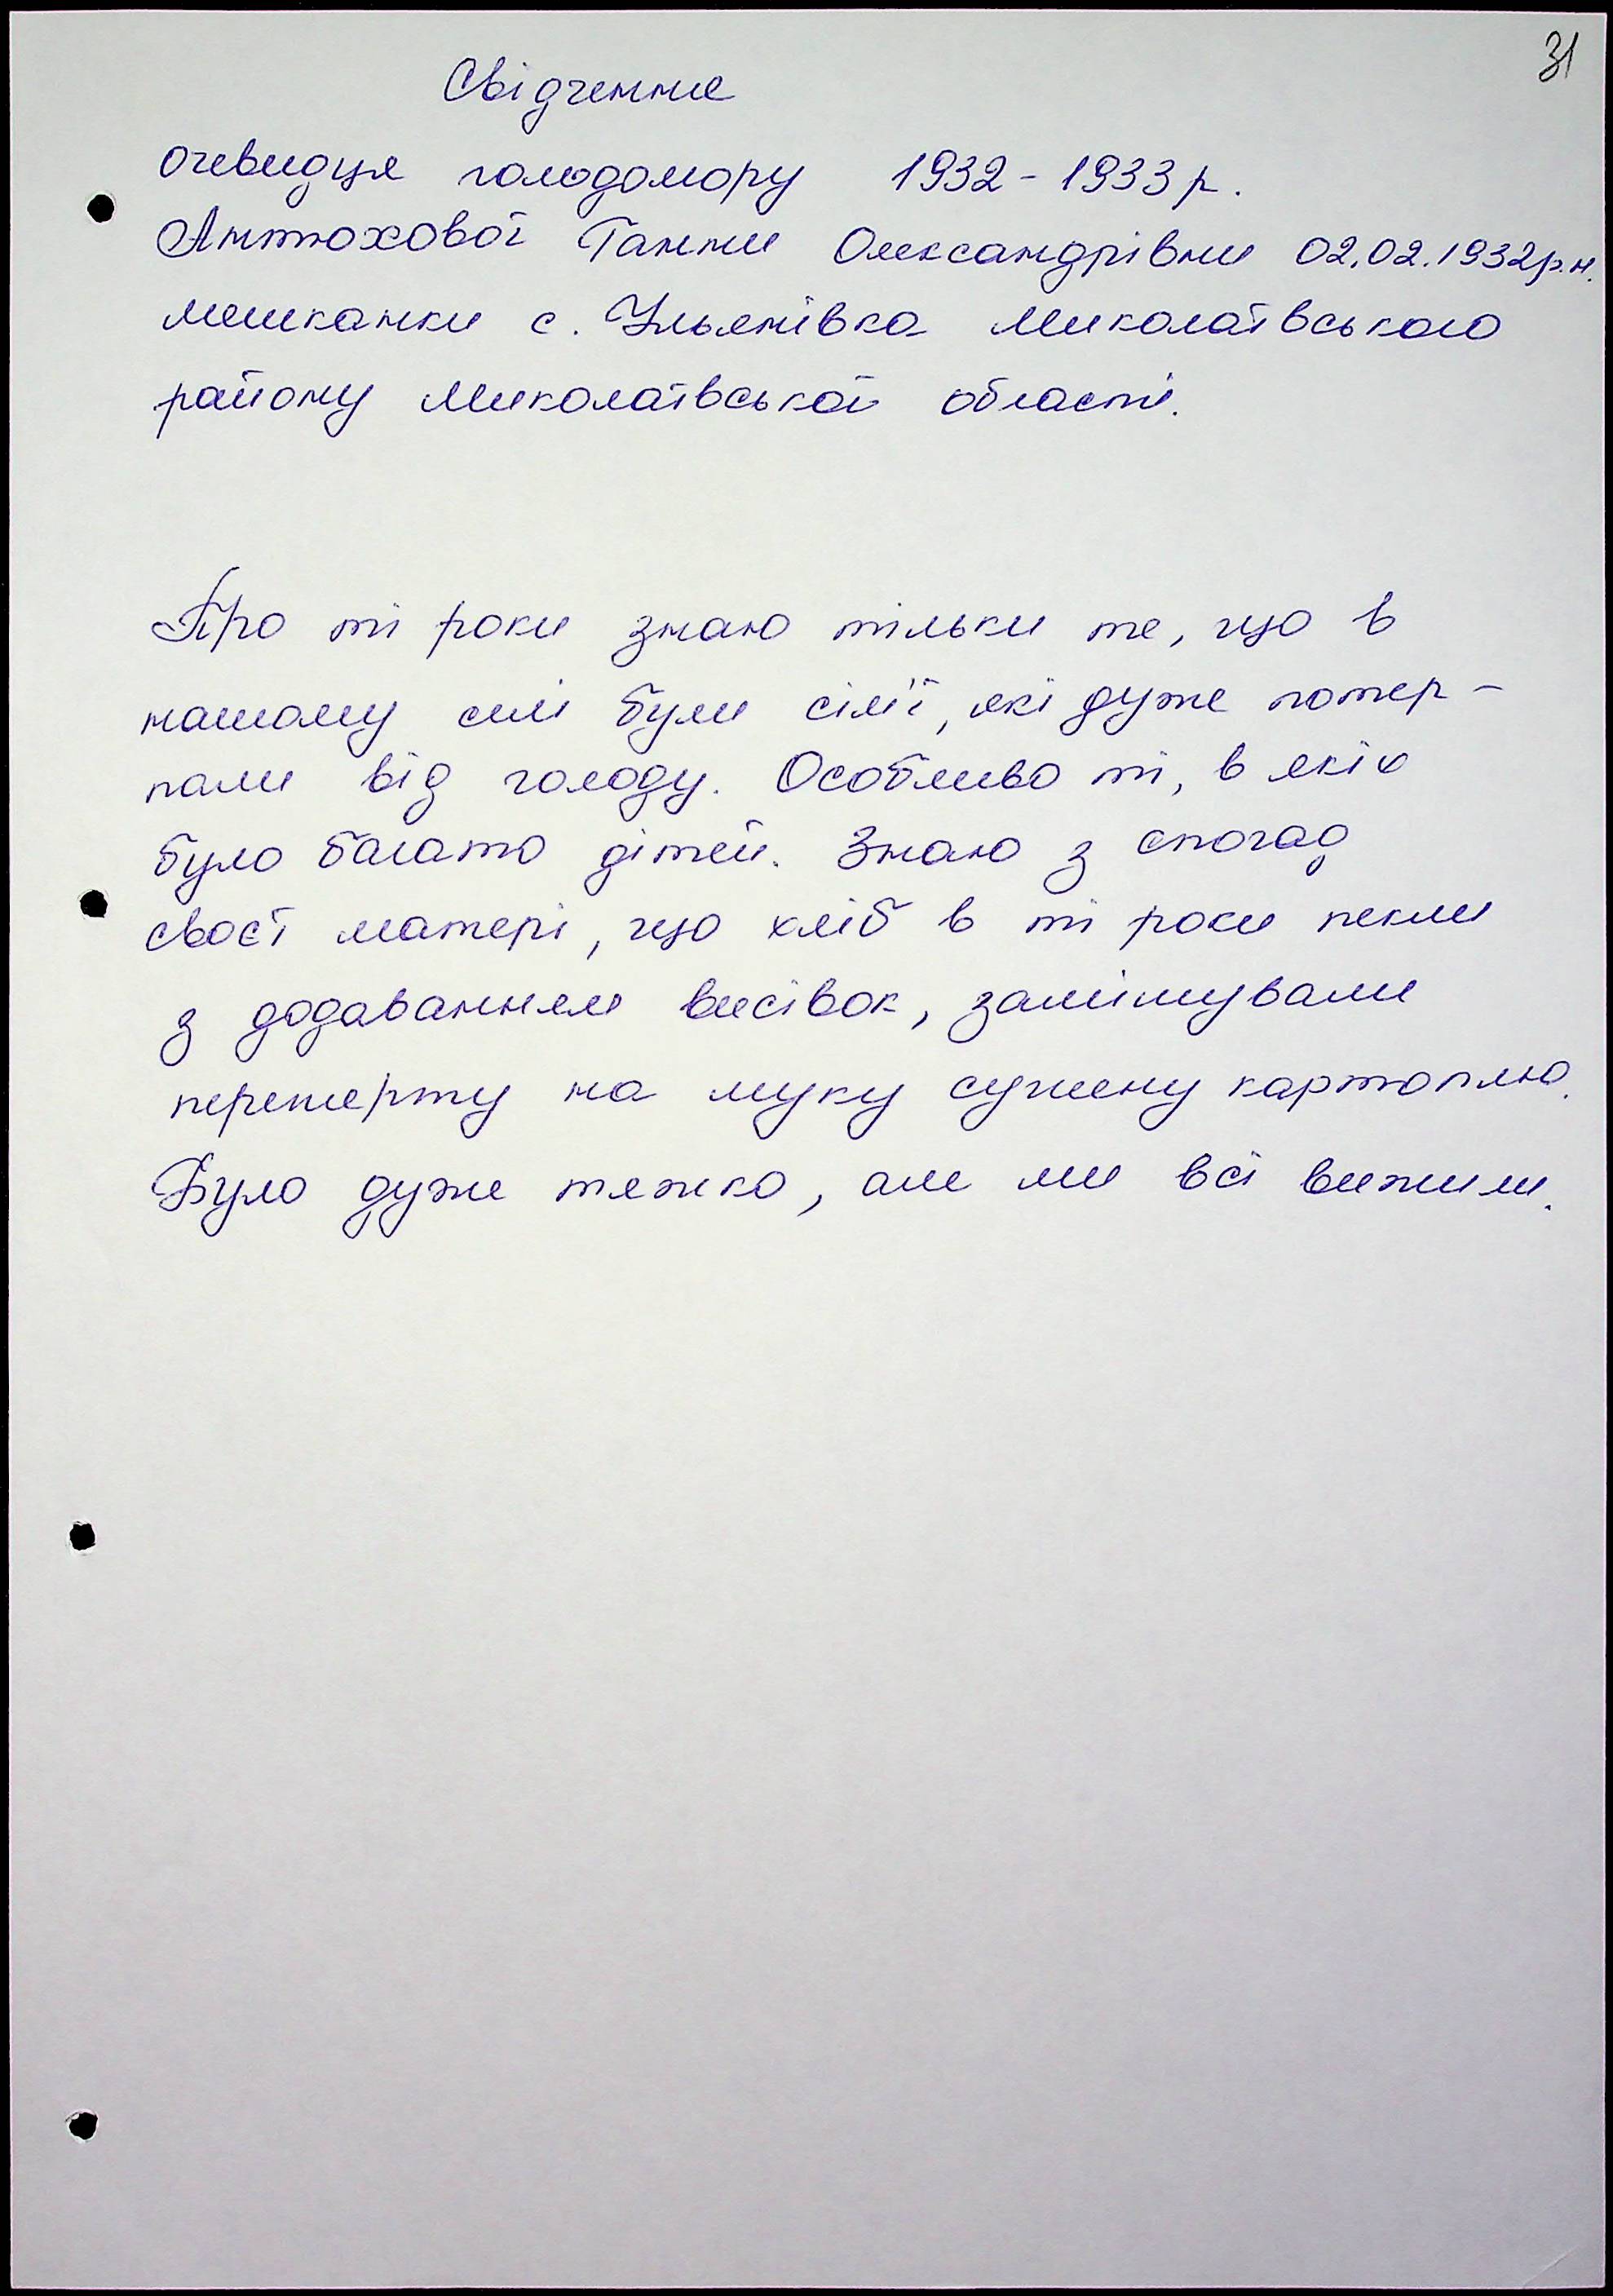 31
Свідчення
очевидця голодомору 1932-1933 р.
Антюхової Ганни Олександрівни 02.02.1932р.н.
мешканки с. Ульянівка Миколаївського
району Миколаївської області.
Про ті роки знаю тільки те, що в
нашому селі були сім'ї, які дуже потер-
пали від голоду. Особливо ті, в яких
було багато дітей. Знаю з спогад
своєї матері, що хліб в ті роки пекли
з додаванням висівок, замішували
перетерту на муку сушену картоплю.
Було дуже тяжко, але ми всі вижили.